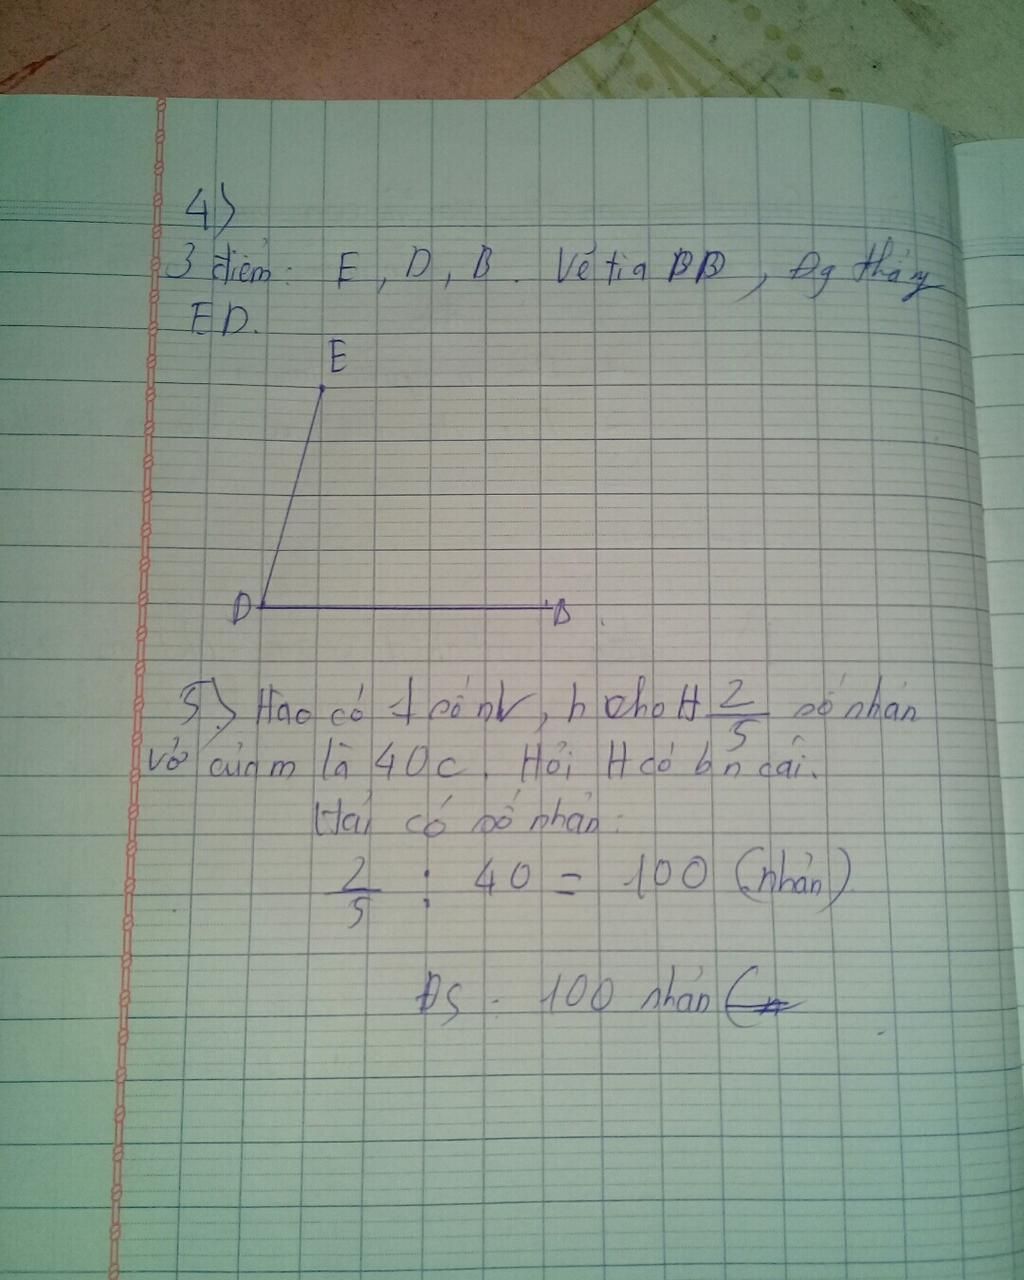 4)
3 điểm: E, D, B. Vẽ tia BB, Đg thẳng
ED.
E
D B
5) Hào có 1 số nv, h cho H 2/5 số nhãn
vở củam là 40c. Hỏi H có bn cái.
Hải có số nhãn:
2/5 : 40 = 100 (nhãn)
ĐS: 100 nhãn